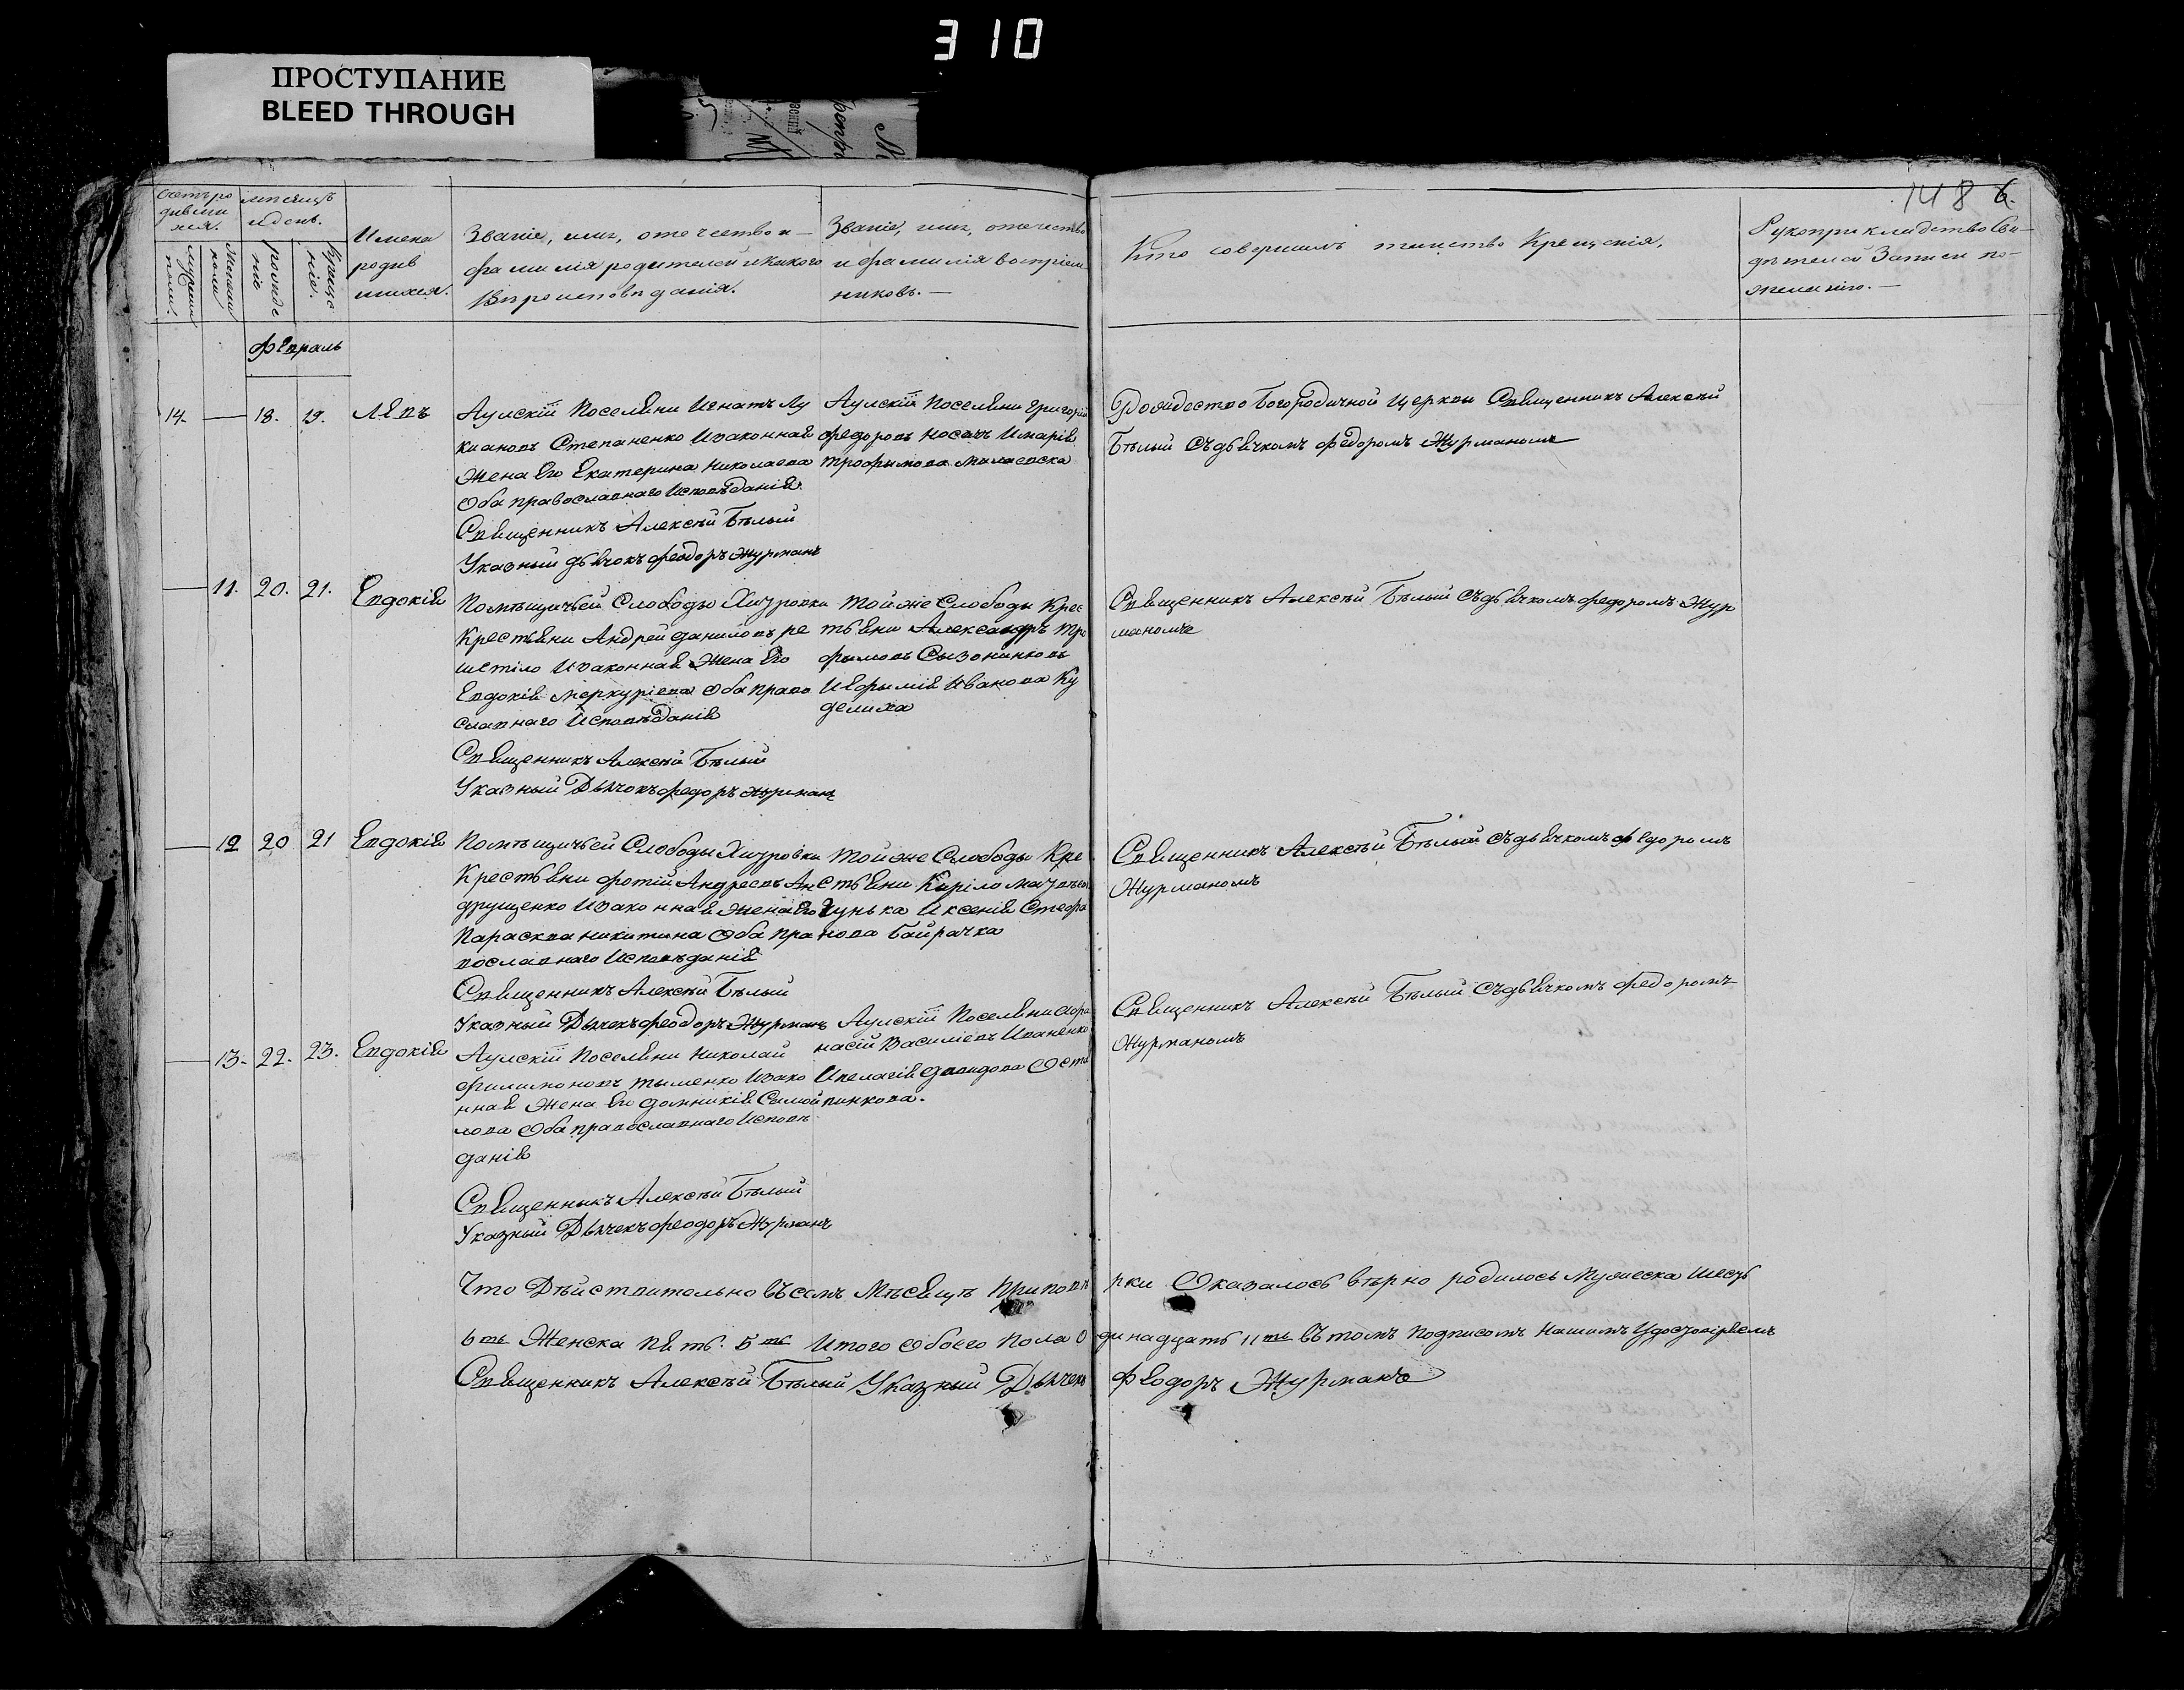 310
ПРОСТУПАНИЕ
BLEED THROUGH
148 6.
Счетъ родившихся.
мѣсяцъ и день.
Мужеска полу.
Женска полу
рожденіе
Крещеніе.
Имена
родив
шихся.
Званіе, имя, отечество и
фамилія родителей и какого
Вѣроисповѣданія.
Званіе, имя, отечество
и фамилія воспріем
никовъ. —
Кто совершалъ таинство Крещенія.
Рукоприкладство Сви-
дѣтелей Записи по
желанію. —
Февраль
14. — 18. 19. Левъ
Аулскій Поселянинъ Игнатъ Лу
кяновъ Степаненко Изаконная
Жена Его Екатерина Николаева
Оба православнаго Исповѣданія
Священникъ Алексѣй Бѣлый
Указный дьячокъ Феодоръ Журманъ
Аулскій Поселянинъ Григорій
Федоровъ Носачъ Имарія
Трофымова Милаевска
Рождество Богородичной Церкви Священникъ Алексѣй
Бѣлый Съдьячкомъ Федоромъ Журманомъ
— 11. 20. 21. Евдокія
Помѣщичьей Слободы Хизровки
Крестьянинъ Андрей Даниловъ ре
шетіло Изаконная Жена Его
Евдокія Меркуріева Оба право
славнаго Исповѣданія
Священникъ Алексѣй Бѣлый
Указный Дьячокъ Федоръ Журманъ
Той же Слободы Крес
тьянинъ Александръ Тро
фымовъ Сызоненковъ
Иефымія Иванова Ку
делиха
Священникъ Алексѣй Бѣлый Съдьячкомъ Федоромъ Жур
маномъ
— 12 20 21 Евдокія
Помѣщичьей Слободы Хизровки
Крестьянинъ Фотій Андреевъ Ан
друщенко Изаконная Жена Его
Парасква Никитина Оба пра
вославнаго Исповѣданія
Священникъ Алексѣй Бѣлый
Указный Дьячекъ Феодоръ Журманъ
Той же Слободы Кре
Стьянинъ Киріло
Зунька Иксенія Стефа
нова Байрачка
Священникъ Алексѣй Бѣлый Съдьячкомъ Федоромъ
Журманомъ
— 13. 22. 23. Евдокія
Аулскій Поселянинъ Николай
Филимоновъ Тыменко Изако
нная Жена Его Домникія Самой
лова Оба православнаго Исповѣ
данія
Священныкъ Алексѣй Бѣлый
Указный Дьячекъ Феодоръ Журманъ
Аулскій Поселянинъ Афа
насій Василіевъ Иваненко
Ипелагія Давидова Оста
пинкова.
Священникъ Алексѣй Бѣлый Съдьячкомъ Федоромъ
Журманомъ
Что Дѣйствительно въ семъ Мѣсяцѣ При повѣ рки Оказалось вѣрно родилось Мужеска шесть
6ть Женска Пять. 5ть Итого Обоего Пола О динадцать 11ть въ томъ Подписомъ Нашимъ Удостовіряемъ
Священникъ Алексѣй Бѣлый Указный Дьячекъ Феодоръ Журманъ